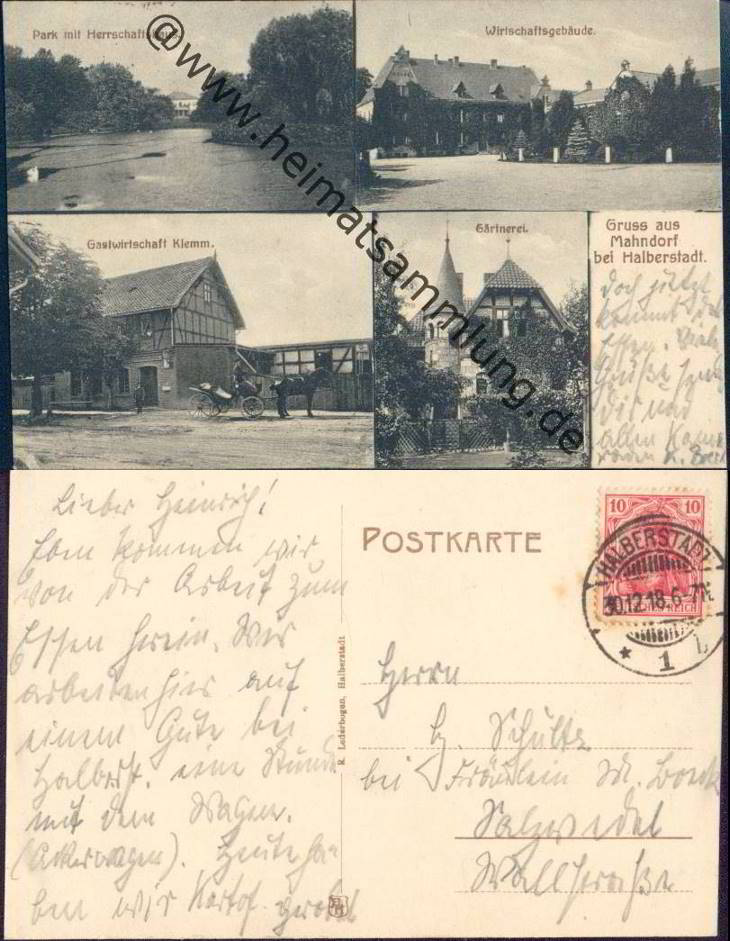 Park mit Herrschaftshaus.
Wirtschaftsgebäude.
Gastwirtschaft Klemm.
Gärtnerei.
Gruss aus
Mahndorf
bei Halberstadt.
doch jetzt
kommt das
Essen. Viele
Grüße
Dir und
allen Kame
raden
@www.heimatsammlung.de
Lieber Heinrich!
Eben kommen wir
von der Arbeit zum
Essen herein. Wir
arbeiten hier auf
einem Gute bei
Halberst. eine Stunde
mit dem Wagen.
(Ackerwagen). Heute ha-
ben wir Kartof. gerodet
R. Lederbogen, Halberstadt
POSTKARTE
10 10
REICH
HALBERSTADT
30.12.18.6-7N.
* 1 b
Herrn
H. Schulte
bei Fräulein M.
Salzwedel
Wallstraße